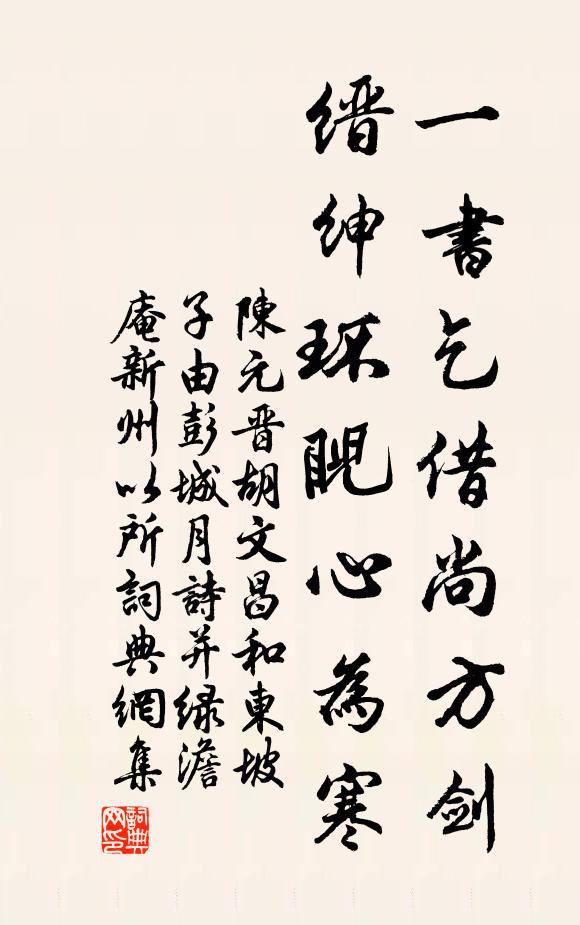 一書乞借尚方劍
縉紳环睨心為寒
陳元晋胡文昌和東坡
子由彭城月詩并緑澹
庵新州以所詞典網集
詞典网印